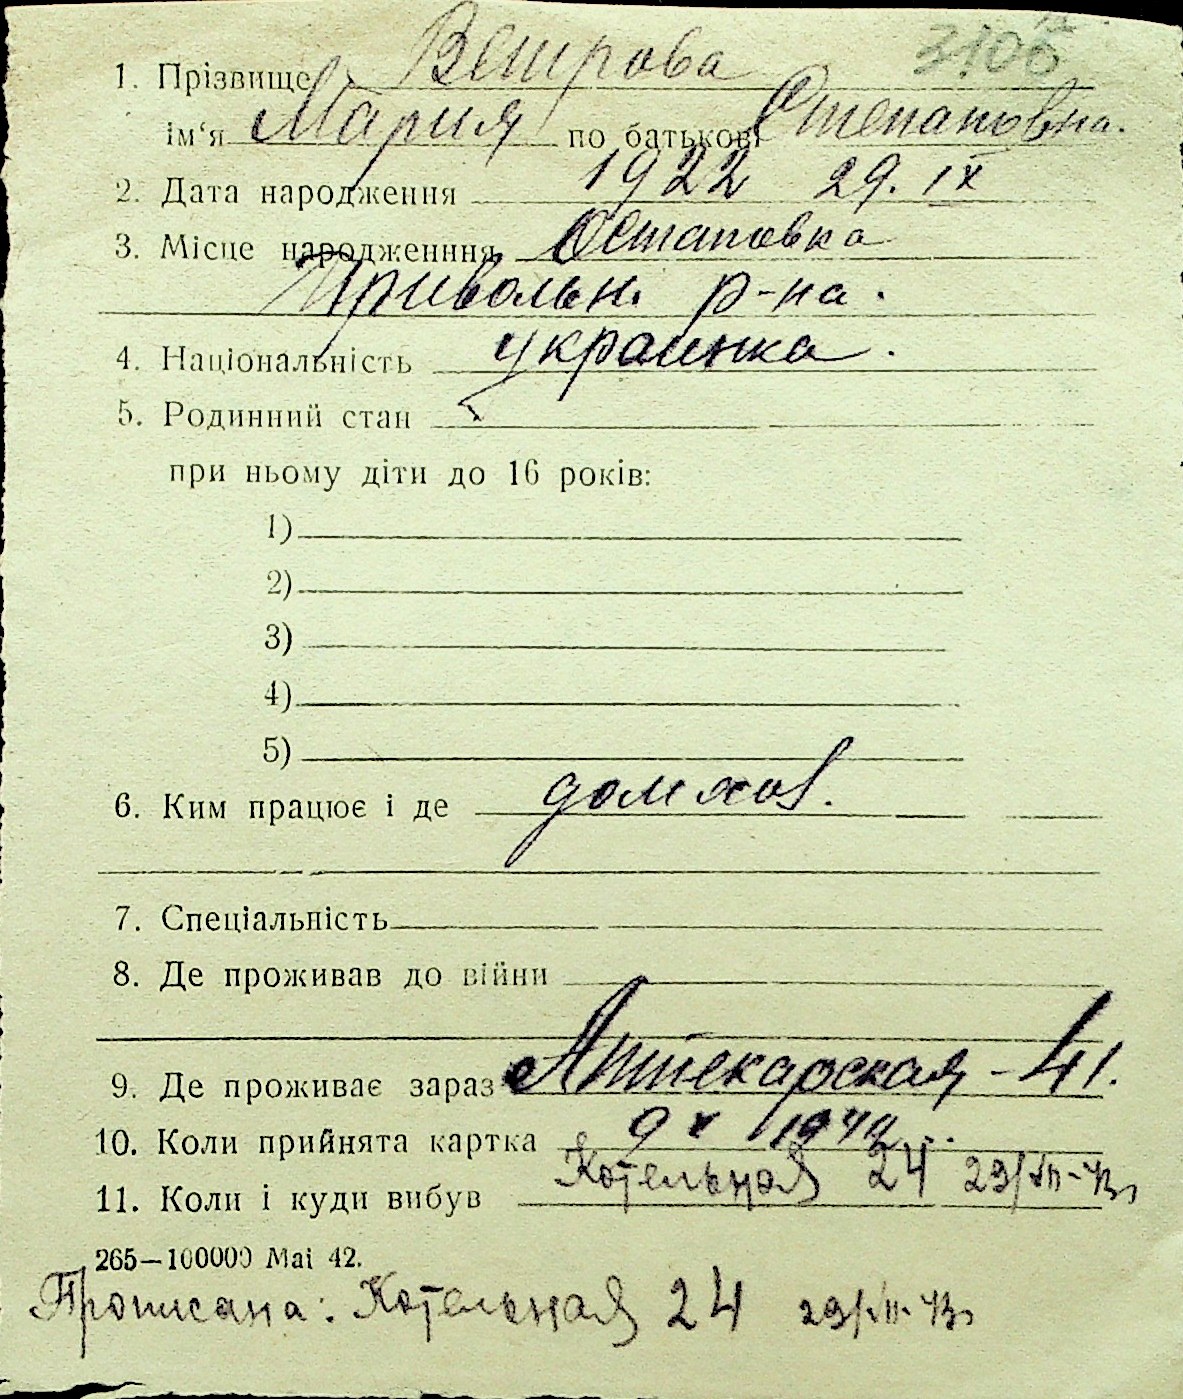 3106
1. Прізвище Ветрова
ім‘я Мария по батькові Степановна.
2. Дата народження 1922 29. IX
3. Місце народженння Остаповка
Привольн. р-на.
4. Національність украинка.
5. Родинний стан
при ньому діти до 16 років:
1)
2)
3)
4)
5)
6. Ким працює і де домхоз.
7. Спеціальність
8. Де проживав до війни
9. Де проживає зараз Аптекарская - 41.
10. Коли прийнята картка 9 X 1942
11. Коли і куди вибув Котельная 24 29/VII-43г
265—100000 Mai 42.
Прописана: Котельная 24 29/VII-43г